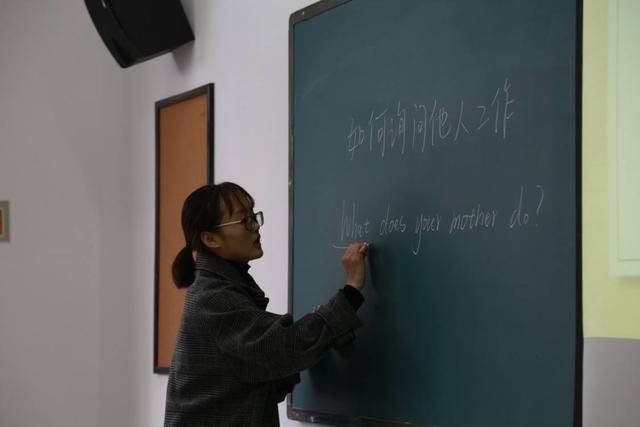 如何询问他人工作
What does your mother do?